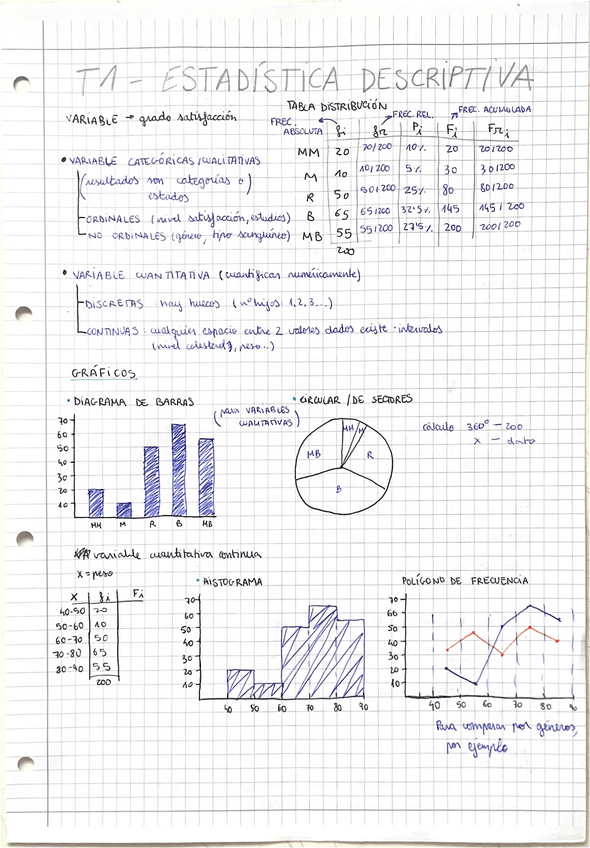 T1 - ESTADÍSTICA DESCRIPTIVA
VARIABLE → grado satisfacción
• VARIABLE CATEGÓRICAS/CUALITATIVAS
(resultados son categorías o estados)
ORDINALES (nivel satisfacción, estudios)
NO ORDINALES (género, tipo sanguíneo)
TABLA DISTRIBUCIÓN
FREC. ABSOLUTA FREC. REL. FREC. ACUMULADA
fi fr Pi Fi Fri
MM 20 20/200 10% 20 20/200
M 10 10/200 5% 30 30/200
R 50 50/200 25% 80 80/200
B 65 65/200 32'5% 145 145/200
MB 55 55/200 27'5% 200 200/200
200
• VARIABLE CUANTITATIVA (cuantificas numéricamente)
DISCRETAS hay huecos (nº hijos 1,2,3...)
CONTINUAS: cualquier espacio entre 2 valores dados existe · intervalos
(nivel colesterol, peso..)
GRÁFICOS
• DIAGRAMA DE BARRAS
(para VARIABLES CUALITATIVAS)
70
60
50
40
30
20
10
MM M R B MB
• CIRCULAR / DE SECTORES
MM M
MB R
B
cálculo 360º — 200
x — dato
variable cuantitativa continua
x = peso
x fi Fi
40-50 20
50-60 10
60-70 50
70-80 65
80-90 55
200
• HISTOGRAMA
70
60
50
40
30
20
10
40 50 60 70 80 90
POLÍGONO DE FRECUENCIA
70
60
50
40
30
20
10
40 50 60 70 80 90
Para comparar por géneros,
por ejemplo